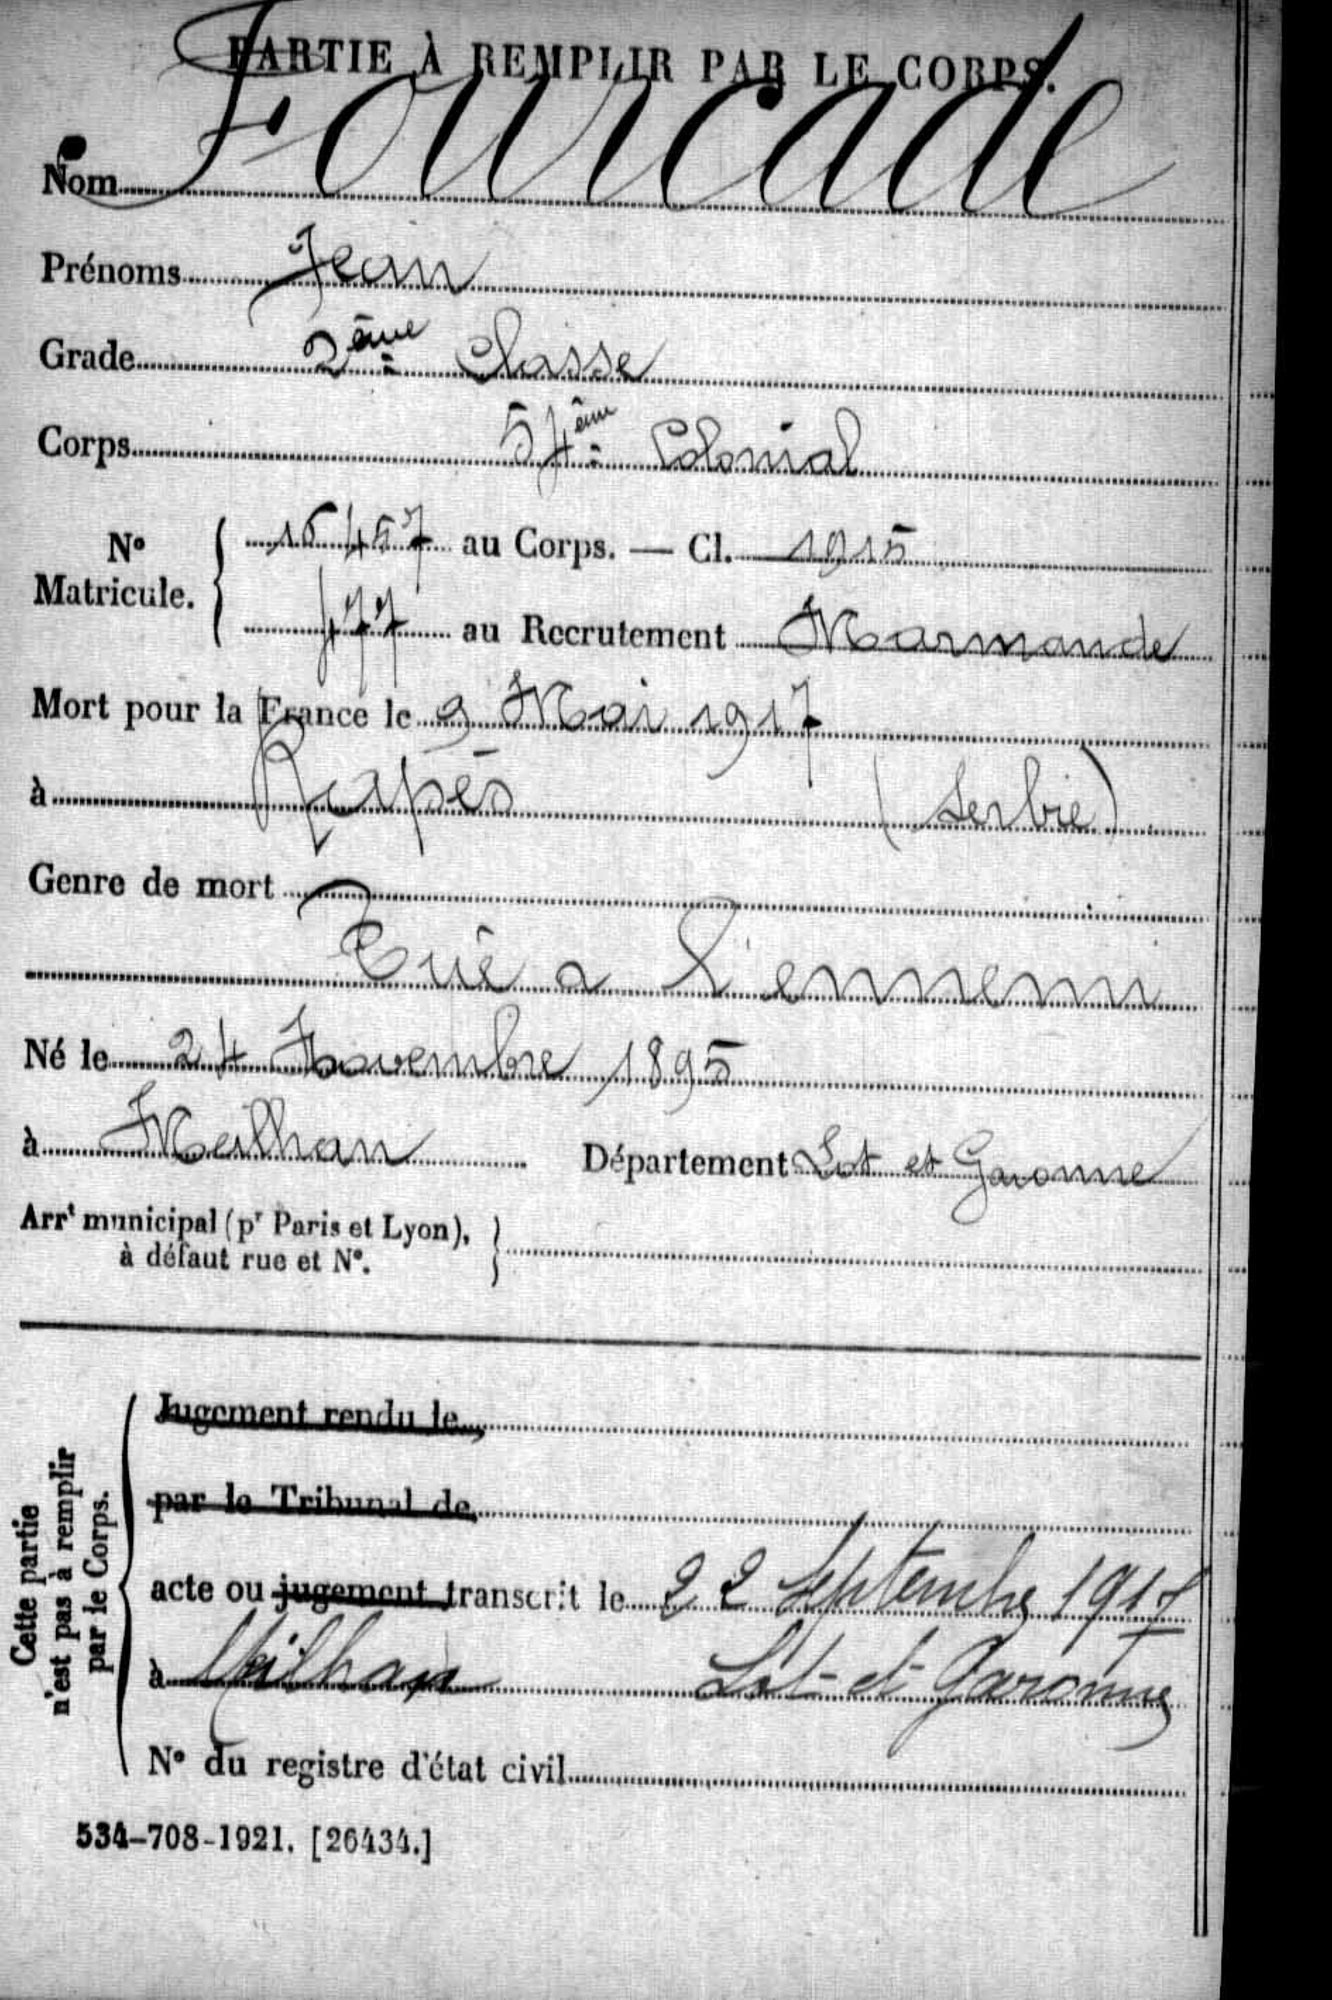 PARTIE À REMPLIR PAR LE CORPS.
Nom Fourcade
Prénoms Jean
Grade 2ème Classe
Corps 54ème Colonial
N° Matricule. 16457 au Corps. — Cl. 1915
477 au Recrutement Marmande
Mort pour la France le 9 Mai 1917
à Rapés (Serbie)
Genre de mort
Tué a l'ennemi
Né le 24 Novembre 1895
à Meilhan Département Lot et Garonne
Arrt municipal (pr Paris et Lyon),
à défaut rue et N°.
Cette partie
n'est pas à remplir
par le Corps.
Jugement rendu le
par le Tribunal de
acte ou jugement transcrit le 22 Septembre 1917
à Meilhan Lot-et-Garonne
N° du registre d'état civil
534-708-1921. [26434.]